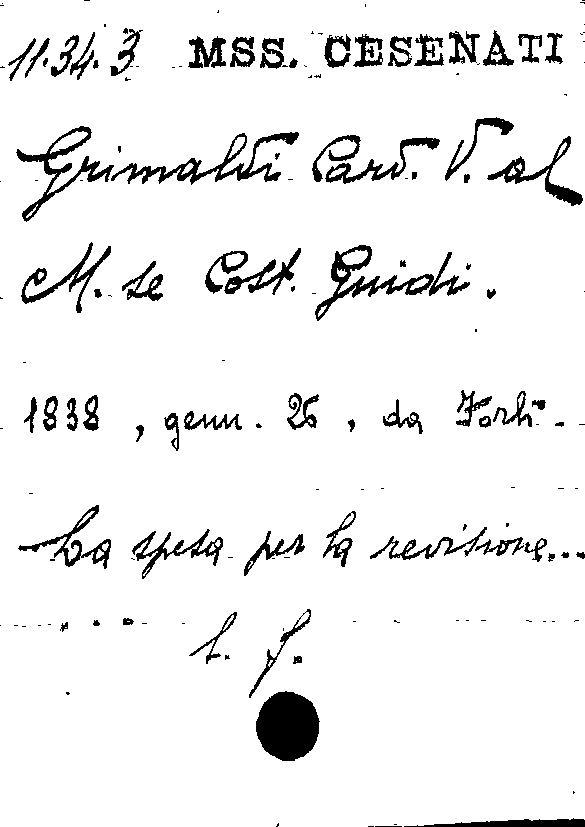 11.34.3 MSS. CESENATI
Grimaldi Card. V. al
M.se Cost. Guidi.
1838, genn. 26, da Forlì.
La spesa per la revisione...
....
l. f.